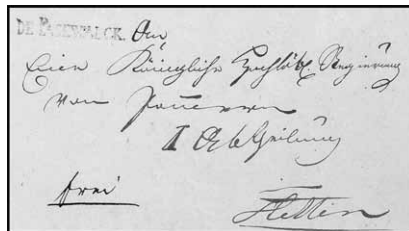 DE PASEWALCK. An
Eine Königliche Hochlöbl. Regierung
von Pommern
I Abtheilung
frei
Stettin